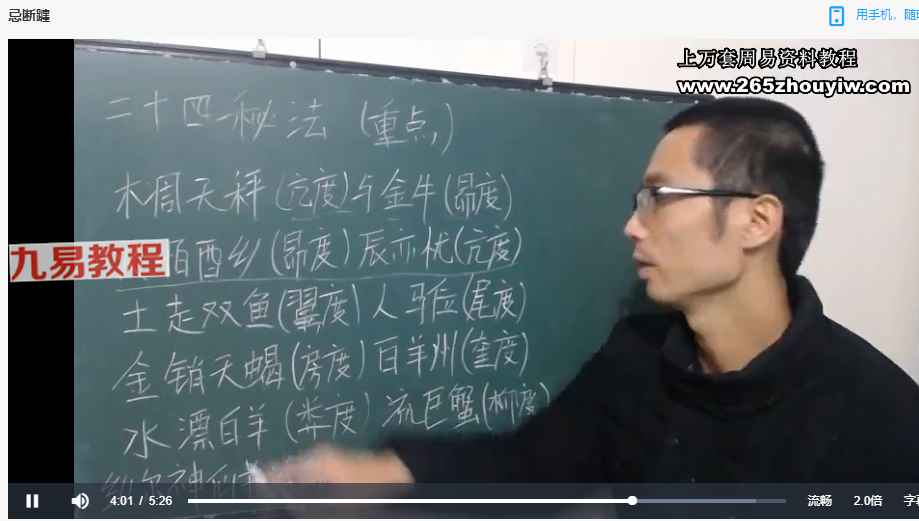 忌断
用手机，随
上万套周易资料教程
www.265zhouyiw.com
二十四秘法（重点）
木周天秤（亢度）与金牛（昴度）
怕酉乡（昴度）辰亦忧（亢度）
九易教程
土走双鱼（翼度）人马位（尾度）
金销天蝎（房度）白羊州（奎度）
水漂白羊（娄度）流巨蟹（柳度）
4:01 / 5:26
流畅
2.0倍
字